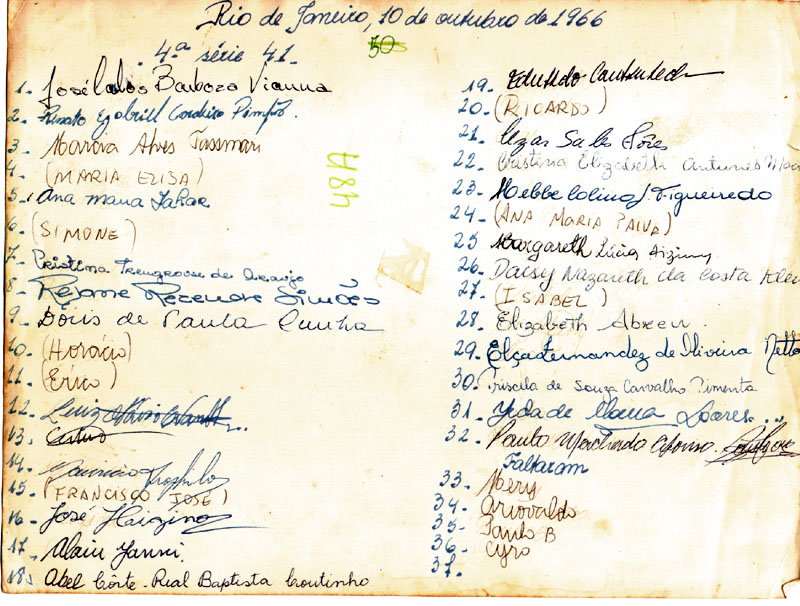 Rio de Janeiro, 10 de outubro de 1966
4ª série 41.
50
1- José Carlos Barboza Vianna
2- Renato Cordeiro
3- Alves Tassman
4- (MARIA ELISA)
5- Ana maria
6- (SIMONE)
7- Cristina de Araujo
8- Rejane Rezende Simões
9- Dóris de Paula Cunha
10- (Horácio)
11- (Érico)
12- Luiz
13-
14- Mauricio
15- (FRANCISCO JOSÉ)
16- José Haigino
17- Alain Yanni.
18- Abel Côrte-Real Baptista Coutinho
484
19- Eduardo
20- (RICARDO)
21- Sales
22- Cristina Elizabeth Antunes
23- Hebbe Figueiredo
24- (ANA MARIA PAIVA)
25 Margareth Lúcia
26- Daisy Nazareth da Costa
27- (ISABEL)
28- Elizabeth Abreu.
29- Elça Fernandez de Oliveira Netto
30- Priscila de Souza Carvalho Pimenta
31- Yeda de Soares...
32- Paulo Machado Afonso.
Faltaram
33- Mery
34- Arivovaldo
35- Paulo B
36- Cyro
37-